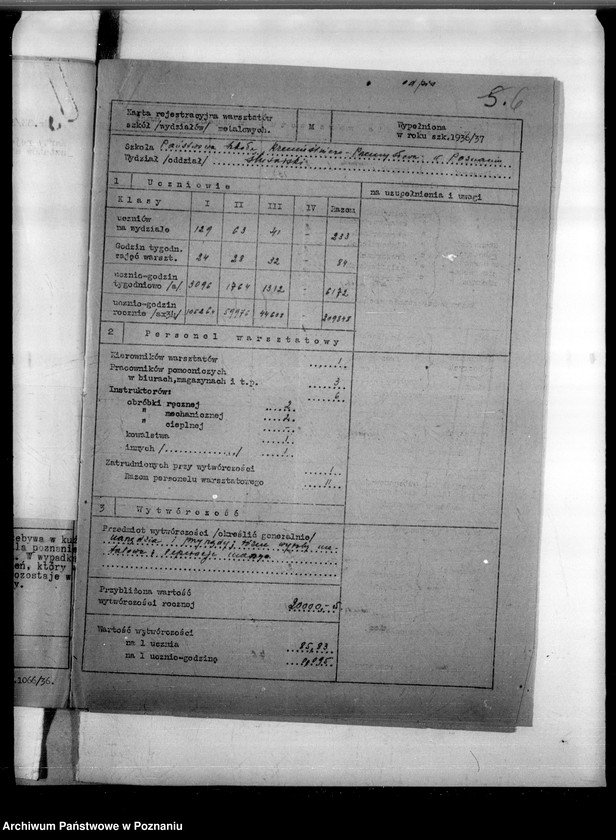 odpis
5.6
Karta rejestracyjna warsztatów
szkół /wydziałów/ metalowych.
M
Wypełniona
w roku szk.1936/37
Szkoła Państwowa Szkoła Przemysłowa w Poznaniu
Wydział /oddział/ ślusarski
1 Uczniowie
na uzupełnienia i uwagi
Klasy I II III IV Razem
uczniów
na wydziale 129 63 41 - 233
Godzin tygodn.
zajęć warszt. 24 28 32 - 84
ucznio-godzin
tygodniowo /a/ 3096 1764 1312 - 6172
ucznio-godzin
rocznie /ax34/ 105264 59976 44608 - 209848
2 Personel warsztatowy
Kierowników warsztatów 1
Pracowników pomocniczych
w biurach,magazynach i t.p. 3
Instruktorów: 6
obróbki ręcznej 2
" mechanicznej 2
" cieplnej -
kowalstwa 1
innych /............../ 1
Zatrudnionych przy wytwórczości 1
Razem personelu warsztatowego 11
3 Wytwórczość
Przedmiot wytwórczości /określić generalnie/
narzędzia i przyrządy; różne wyroby me-
talowe i reperacje maszyn
Przybliżona wartość
wytwórczości rocznej 20000,-
Wartość wytwórczości
na 1 ucznia 85,83
na 1 ucznio-godzinę 0,095
ebywa w ku
la poznanie
. W wypadk
eń, który
ozostaje w
y.
.1066/36.
Archiwum Państwowe w Poznaniu